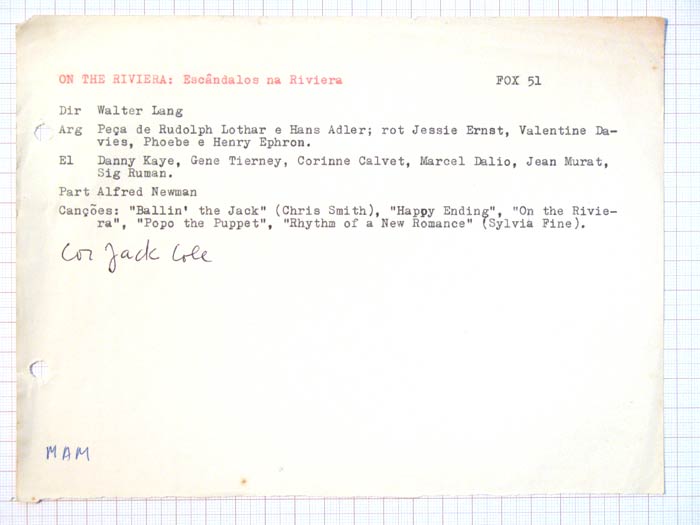 ON THE RIVIERA: Escândalos na Riviera FOX 51
Dir Walter Lang
Arg Peça de Rudolph Lothar e Hans Adler; rot Jessie Ernst, Valentine Da-
vies, Phoebe e Henry Ephron.
El Danny Kaye, Gene Tierney, Corinne Calvet, Marcel Dalio, Jean Murat,
Sig Ruman.
Part Alfred Newman
Canções: "Ballin' the Jack" (Chris Smith), "Happy Ending", "On the Rivie-
ra", "Popo the Puppet", "Rhythm of a New Romance" (Sylvia Fine).
Cor Jack Cole
MAM